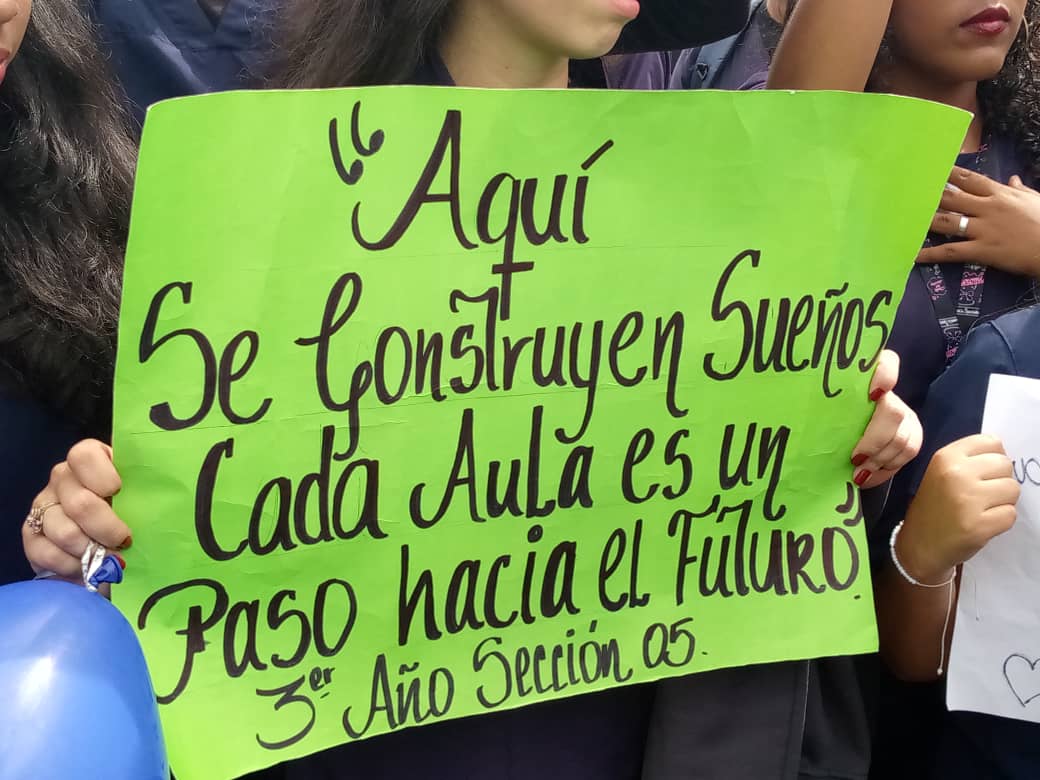 “Aquí
Se Construyen Sueños
Cada Aula es un
Paso hacia el Futuro”.
3er Año Sección 05.